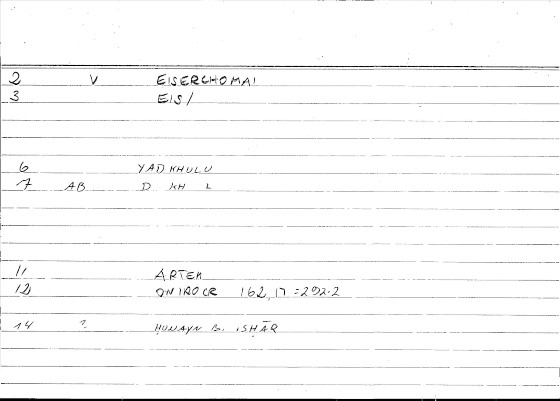 2 V EISERCHOMAI
3 EIS/
6 YADKHULU
7 AB D KH L
11 ARTEM
12 ONIROCR 162,17 = 292.2
14 ? ḤUNAYN B. ISḤĀQ